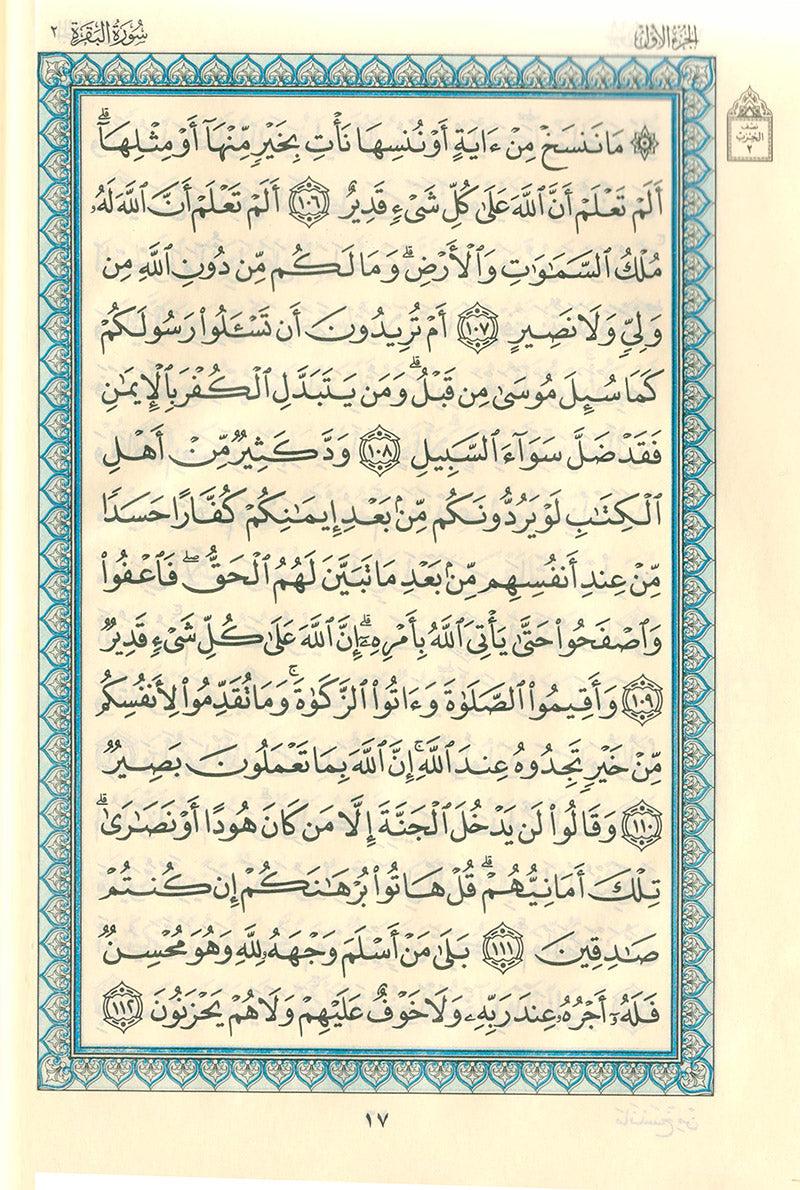 الجزء الأول
سُورَةُ البَقَرَةِ ٢
نصف
الحزب
٢
۞ مَا نَنسَخْ مِنْ ءَايَةٍ أَوْ نُنسِهَا نَأْتِ بِخَيْرٍ مِّنْهَآ أَوْ مِثْلِهَآۗ
أَلَمْ تَعْلَمْ أَنَّ ٱللَّهَ عَلَىٰ كُلِّ شَىْءٍ قَدِيرٌ ١٠٦ أَلَمْ تَعْلَمْ أَنَّ ٱللَّهَ لَهُۥ
مُلْكُ ٱلسَّمَٰوَٰتِ وَٱلْأَرْضِۗ وَمَا لَكُم مِّن دُونِ ٱللَّهِ مِن
وَلِىٍّ وَلَا نَصِيرٍ ١٠٧ أَمْ تُرِيدُونَ أَن تَسْـَٔلُوا۟ رَسُولَكُمْ
كَمَا سُئِلَ مُوسَىٰ مِن قَبْلُۗ وَمَن يَتَبَدَّلِ ٱلْكُفْرَ بِٱلْإِيمَٰنِ
فَقَدْ ضَلَّ سَوَآءَ ٱلسَّبِيلِ ١٠٨ وَدَّ كَثِيرٌ مِّنْ أَهْلِ
ٱلْكِتَٰبِ لَوْ يَرُدُّونَكُم مِّنۢ بَعْدِ إِيمَٰنِكُمْ كُفَّارًا حَسَدًا
مِّنْ عِندِ أَنفُسِهِم مِّنۢ بَعْدِ مَا تَبَيَّنَ لَهُمُ ٱلْحَقُّۖ فَٱعْفُوا۟
وَٱصْفَحُوا۟ حَتَّىٰ يَأْتِىَ ٱللَّهُ بِأَمْرِهِۦٓۗ إِنَّ ٱللَّهَ عَلَىٰ كُلِّ شَىْءٍ قَدِيرٌ
١٠٩ وَأَقِيمُوا۟ ٱلصَّلَوٰةَ وَءَاتُوا۟ ٱلزَّكَوٰةَۚ وَمَا تُقَدِّمُوا۟ لِأَنفُسِكُم
مِّنْ خَيْرٍ تَجِدُوهُ عِندَ ٱللَّهِۗ إِنَّ ٱللَّهَ بِمَا تَعْمَلُونَ بَصِيرٌ
١١٠ وَقَالُوا۟ لَن يَدْخُلَ ٱلْجَنَّةَ إِلَّا مَن كَانَ هُودًا أَوْ نَصَٰرَىٰۗ
تِلْكَ أَمَانِيُّهُمْۗ قُلْ هَاتُوا۟ بُرْهَٰنَكُمْ إِن كُنتُمْ
صَٰدِقِينَ ١١١ بَلَىٰ مَنْ أَسْلَمَ وَجْهَهُۥ لِلَّهِ وَهُوَ مُحْسِنٌ
فَلَهُۥٓ أَجْرُهُۥ عِندَ رَبِّهِۦ وَلَا خَوْفٌ عَلَيْهِمْ وَلَا هُمْ يَحْزَنُونَ ١١٢
١٧